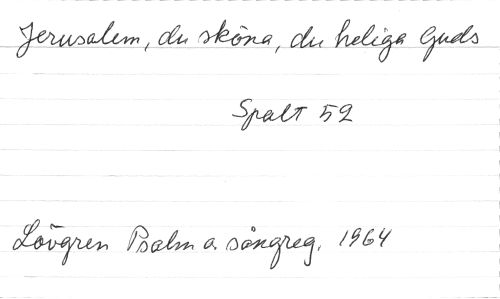 Jerusalem, du sköna, du heliga Guds
Spalt 52
Lövgren Psalm o. sångreg. 1964